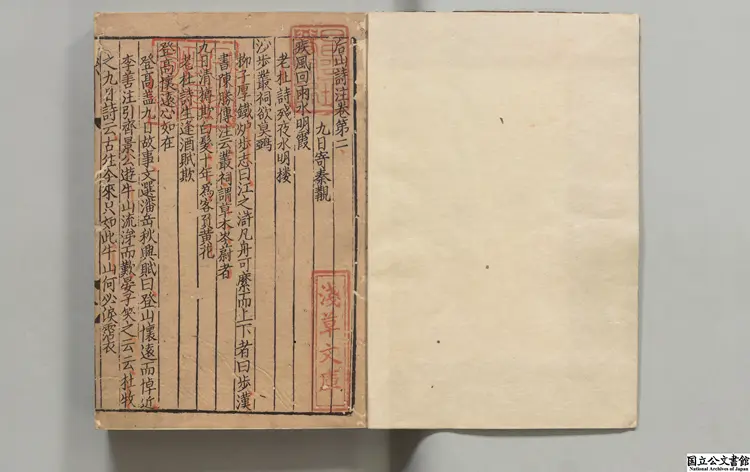 后山詩注卷第二
九日寄秦觀
疾風回雨水明霞
老杜詩殘夜水明樓
沙步叢祠欲莫鴉
柳子厚鐵炉步志曰江之滸凡舟可縻而上下者曰步漢
書陳勝傳注云叢祠謂草木岑蔚者
九日清樽欺白髮十年為客負黄花
老杜詩生逢酒賦欺
登高懷遠心如在
登高盖九日故事文選潘岳秋興賦曰登山懷遠而悼近
李善注引齊景公遊牛山流涕而歎晏子笑之云云杜牧
之九日詩云古往今來只如此牛山何必淚霑衣
淺草文庫
国立公文書館
National Archives of Japan